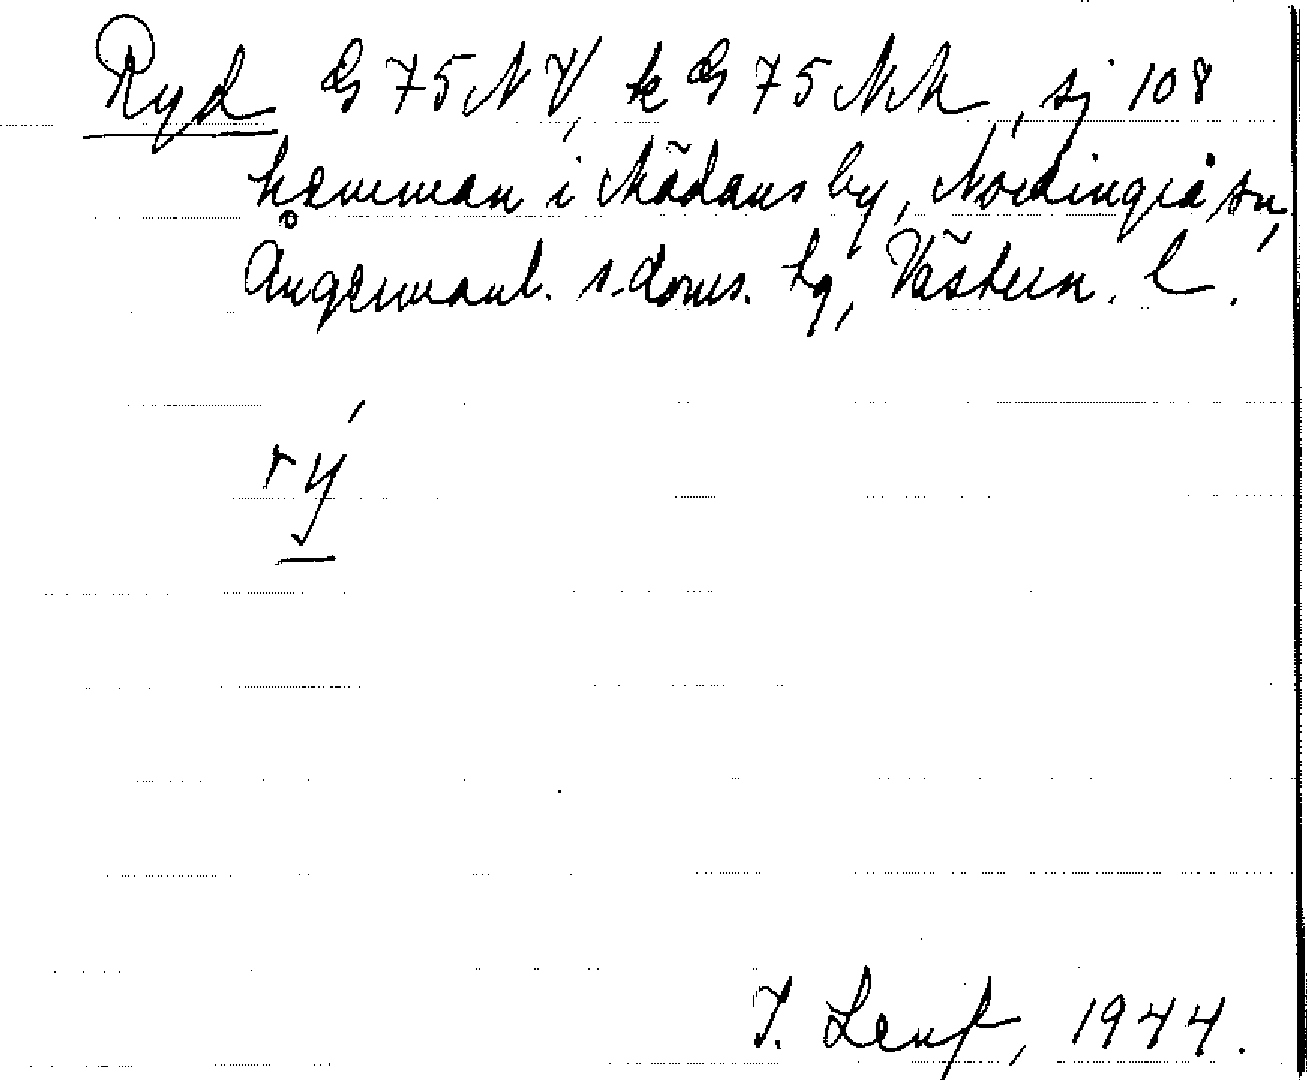 Ryd G 75 NV, k G 75 NM, sj 108
hemman i Mädans by, Nordingrå sn,
Ångermanl. s. doms. tg, Västern. l.
rý
T. Lenf, 1944.